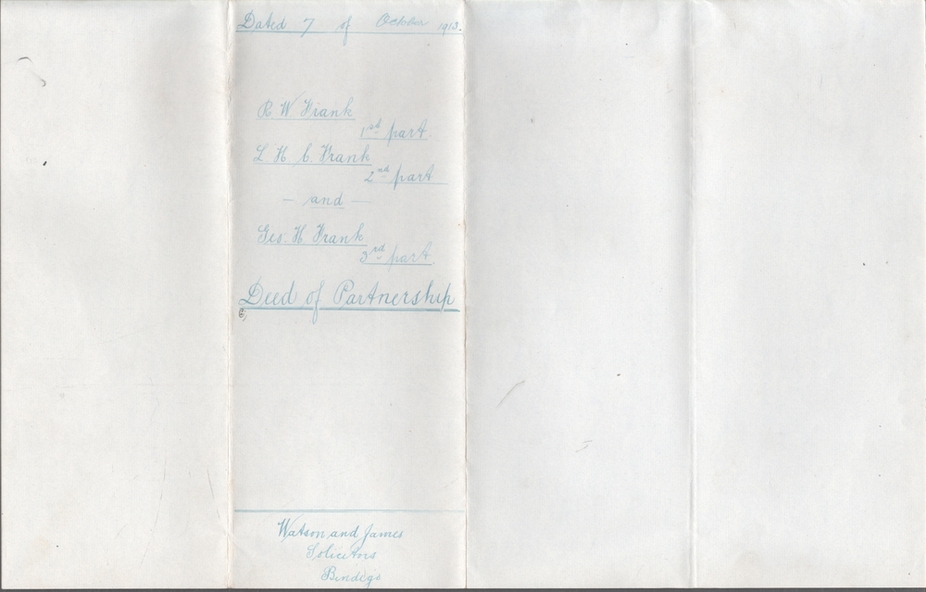 Dated 7 of October 1913.
R W Frank
1st part.
L H C. Frank
2nd part
- and -
Geo. H Frank
3rd part.
Deed of Partnership
Watson and James
Solicitors